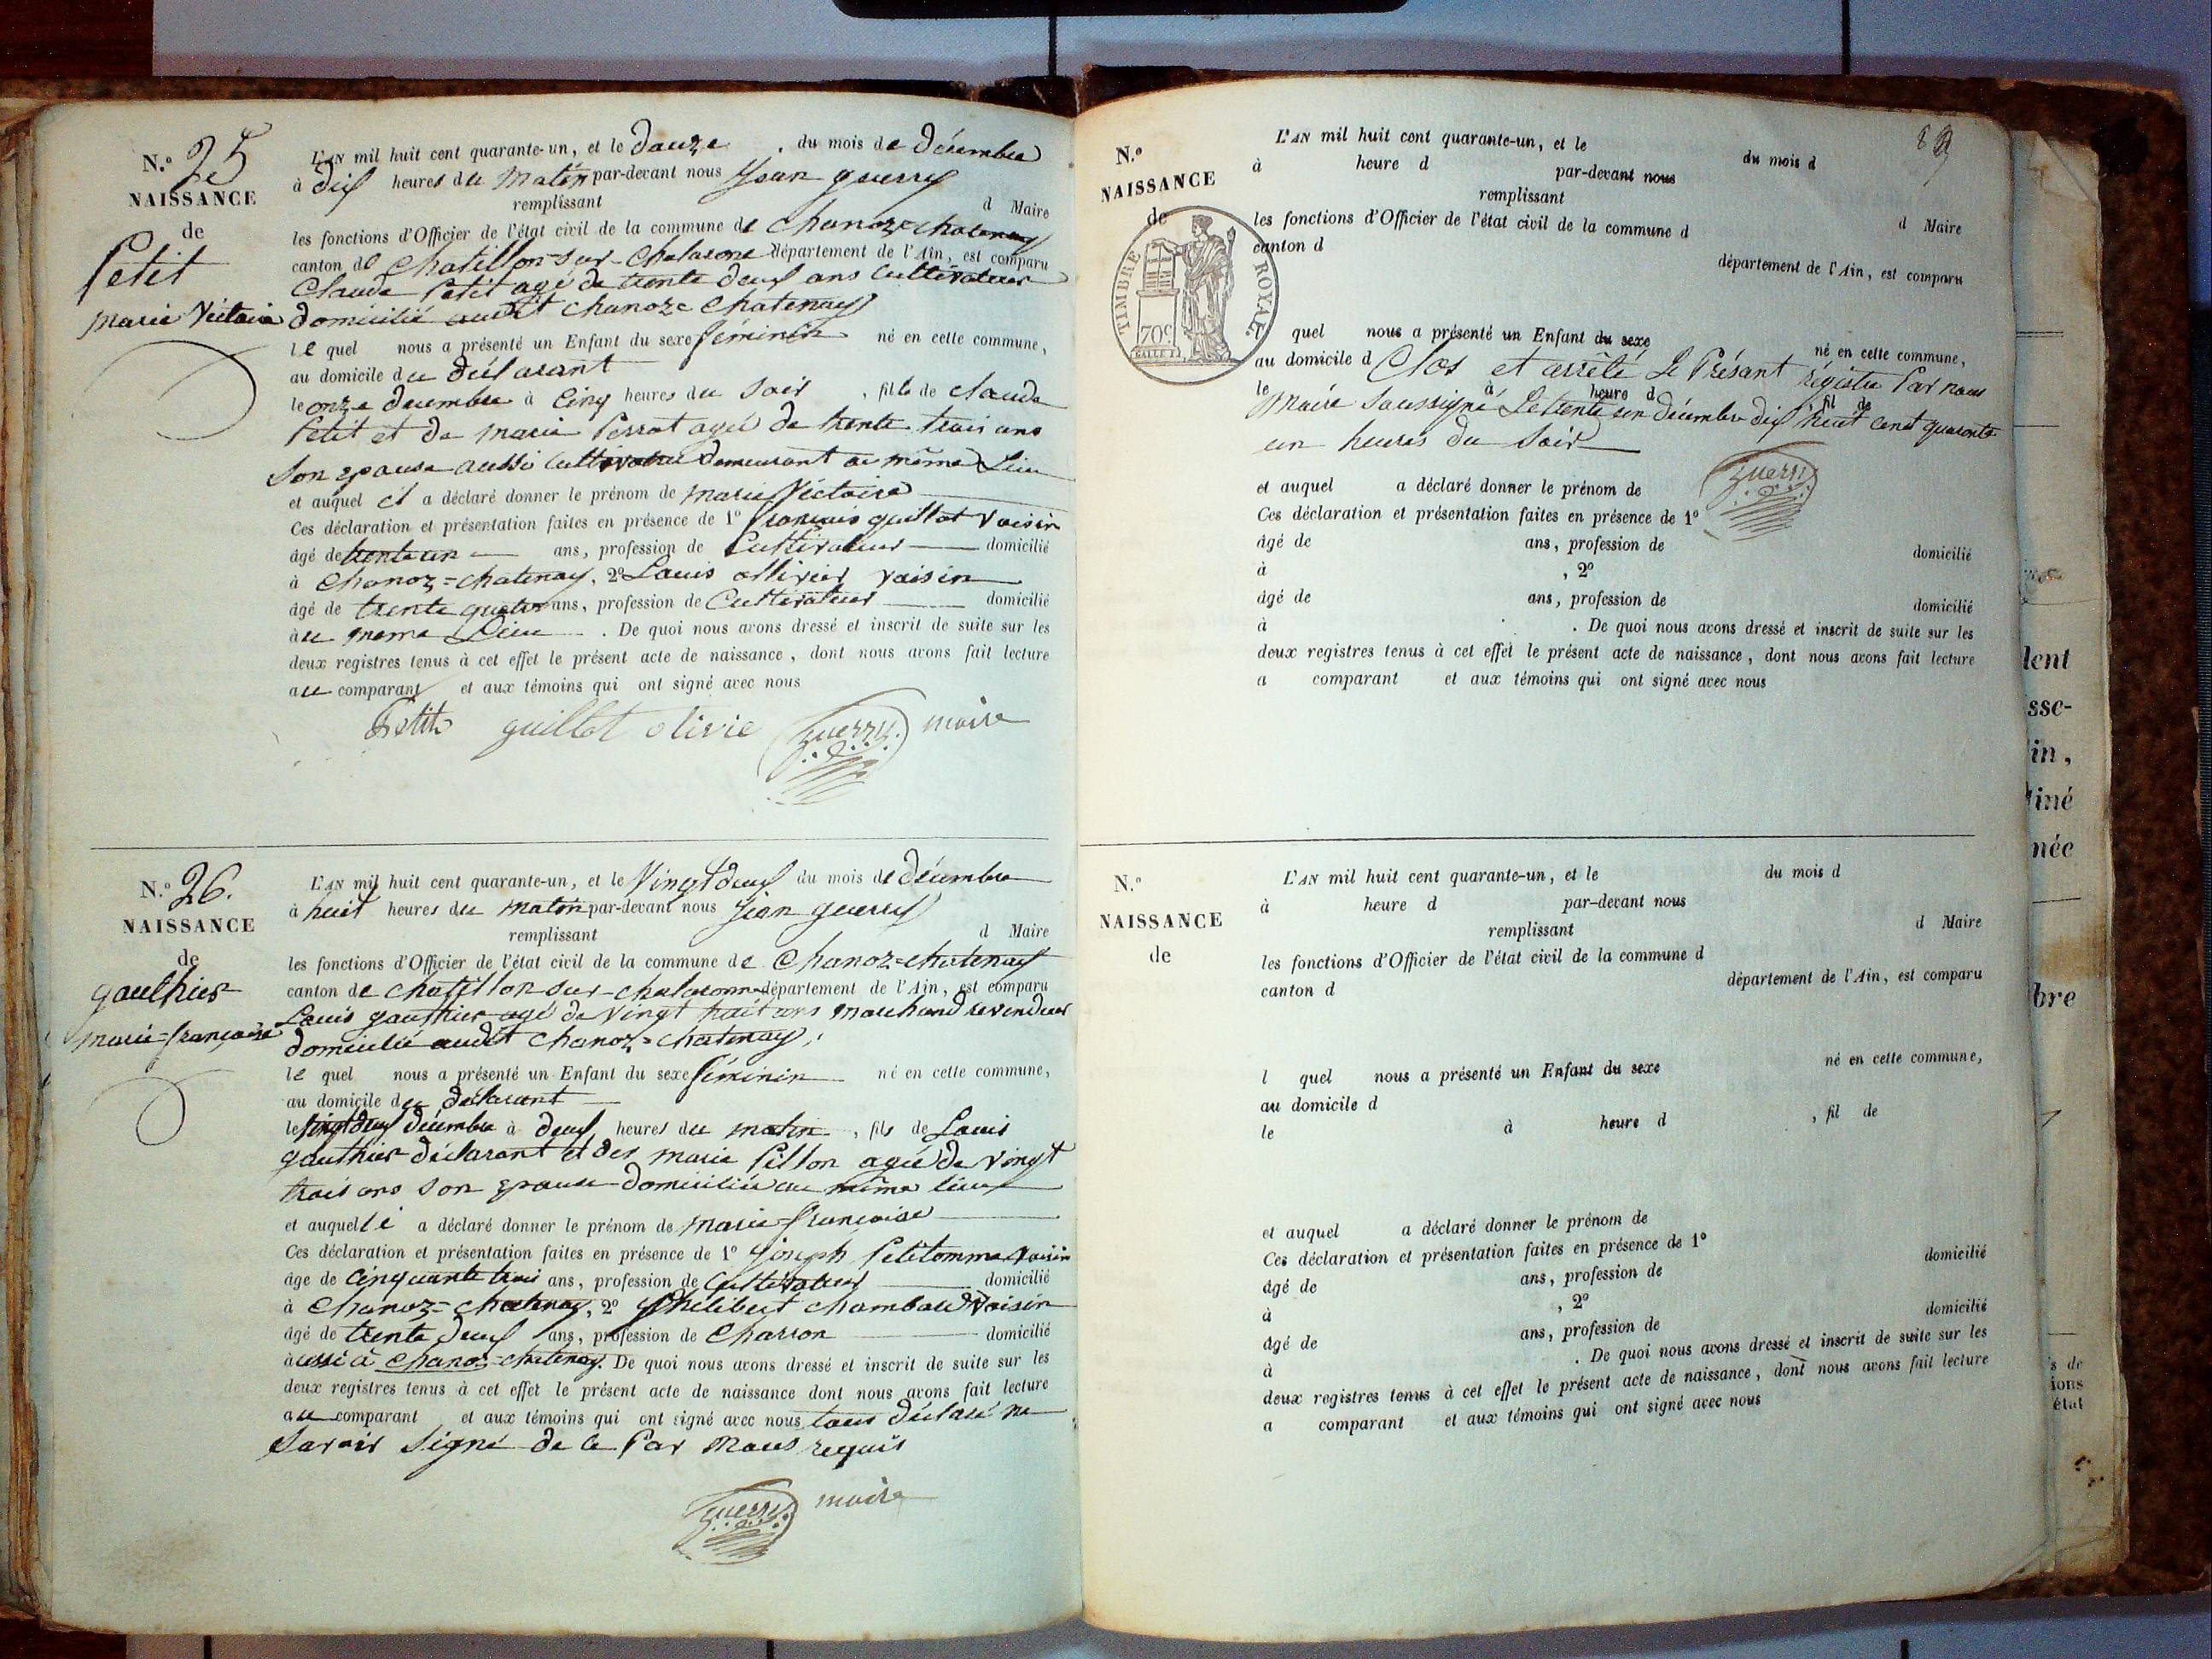 N.º 25
NAISSANCE
de
Petit
marie Victoire
L'AN mil huit cent quarante-un, et le douze du mois de décembre
à dix heures du matin par-devant nous Jean guerry
remplissant d Maire
les fonctions d'Officier de l'état civil de la commune de Chanoz-chatenay
canton de Chatillon-sur-Chalarone département de l'Ain, est comparu
Claude Petit agé de trente deux ans Cultivateur
domicilié audit Chanoz=Chatenay
le quel nous a présenté un Enfant du sexe féminin né en cette commune,
au domicile du déclarant
le onze décembre à cinq heures du soir, fille de claude
Petit et de marie Perrot agée de trente trois ans
son epouse aussi demeurant au même Lieu
et auquel il a déclaré donner le prénom de marie Victoire
Ces déclaration et présentation faites en présence de 1º françois guillot Voisin
âgé de trente un ans, profession de Cultivateur domicilié
à Chanoz=chatenay, 2º Louis ollivier voisin
âgé de trente quatre ans, profession de Cultivateur domicilié
au meme Lieu. De quoi nous avons dressé et inscrit de suite sur les
deux registres tenus à cet effet le présent acte de naissance, dont nous avons fait lecture
au comparant et aux témoins qui ont signé avec nous
Petit guillot olivie guerry maire
N.º 26.
NAISSANCE
de
gauthier
marie=françoise
L'AN mil huit cent quarante-un, et le Vingt deux du mois de décembre
à huit heures du matin par-devant nous Jean guerry
remplissant d Maire
les fonctions d'Officier de l'état civil de la commune de Chanoz=chatenay
canton de chatillon sur-chalaronne département de l'Ain, est comparu
Louis gauthier agé de vingt huit ans marchand revendeur
domicilié audit Chanoz=chatenay;
le quel nous a présenté un Enfant du sexe féminin né en cette commune,
au domicile du déclarant
le vingt deux décembre à deux heures du matin, fils de Louis
gauthier déclarant et des marie Pillon agée de vingt
trois ans son epouse domiciliée au même lieu
et auquel li a déclaré donner le prénom de marie françoise
Ces déclaration et présentation faites en présence de 1º Joseph Petitomme voisin
âge de cinquante trois ans, profession de Cultivateur domicilié
à Chanoz=chatenay, 2º Philibert Chambard voisin
âgé de trente deux ans, profession de Charron domicilié
aussi à chanoz=chatenay. De quoi nous avons dressé et inscrit de suite sur les
deux registres tenus à cet effet le présent acte de naissance dont nous avons fait lecture
au comparant et aux témoins qui ont signé avec nous tous déclaré ne
savoir signé de ce Par nous requis
guerry maire
N.º
NAISSANCE
de
TIMBRE ROYAL
70c
L'AN mil huit cent quarante-un, et le du mois d
à heure d par-devant nous
remplissant d Maire
les fonctions d'Officier de l'état civil de la commune d
canton d département de l'Ain, est comparu
quel nous a présenté un Enfant du sexe né en cette commune,
au domicile d Clos et arrêté Le Présant régistre Par nous
le à heure d fil de
Maire Soussigné Le trente un décembre dix huit cent quarante
un heures du Soir
Guerry
et auquel a déclaré donner le prénom de
Ces déclaration et présentation faites en présence de 1º
âgé de ans, profession de domicilié
à , 2º
âgé de ans, profession de domicilié
à . De quoi nous avons dressé et inscrit de suite sur les
deux registres tenus à cet effet le présent acte de naissance, dont nous avons fait lecture
a comparant et aux témoins qui ont signé avec nous
N.º
NAISSANCE
de
L'AN mil huit cent quarante-un, et le du mois d
à heure d par-devant nous
remplissant d Maire
les fonctions d'Officier de l'état civil de la commune d
canton d département de l'Ain, est comparu
l quel nous a présenté un Enfant du sexe né en cette commune,
au domicile d
le à heure d , fil de
et auquel a déclaré donner le prénom de
Ces déclaration et présentation faites en présence de 1º
âgé de ans, profession de domicilié
à , 2º
âgé de ans, profession de domicilié
à . De quoi nous avons dressé et inscrit de suite sur les
deux registres tenus à cet effet le présent acte de naissance, dont nous avons fait lecture
a comparant et aux témoins qui ont signé avec nous
dent
sse-
in,
née
bre
ions
état